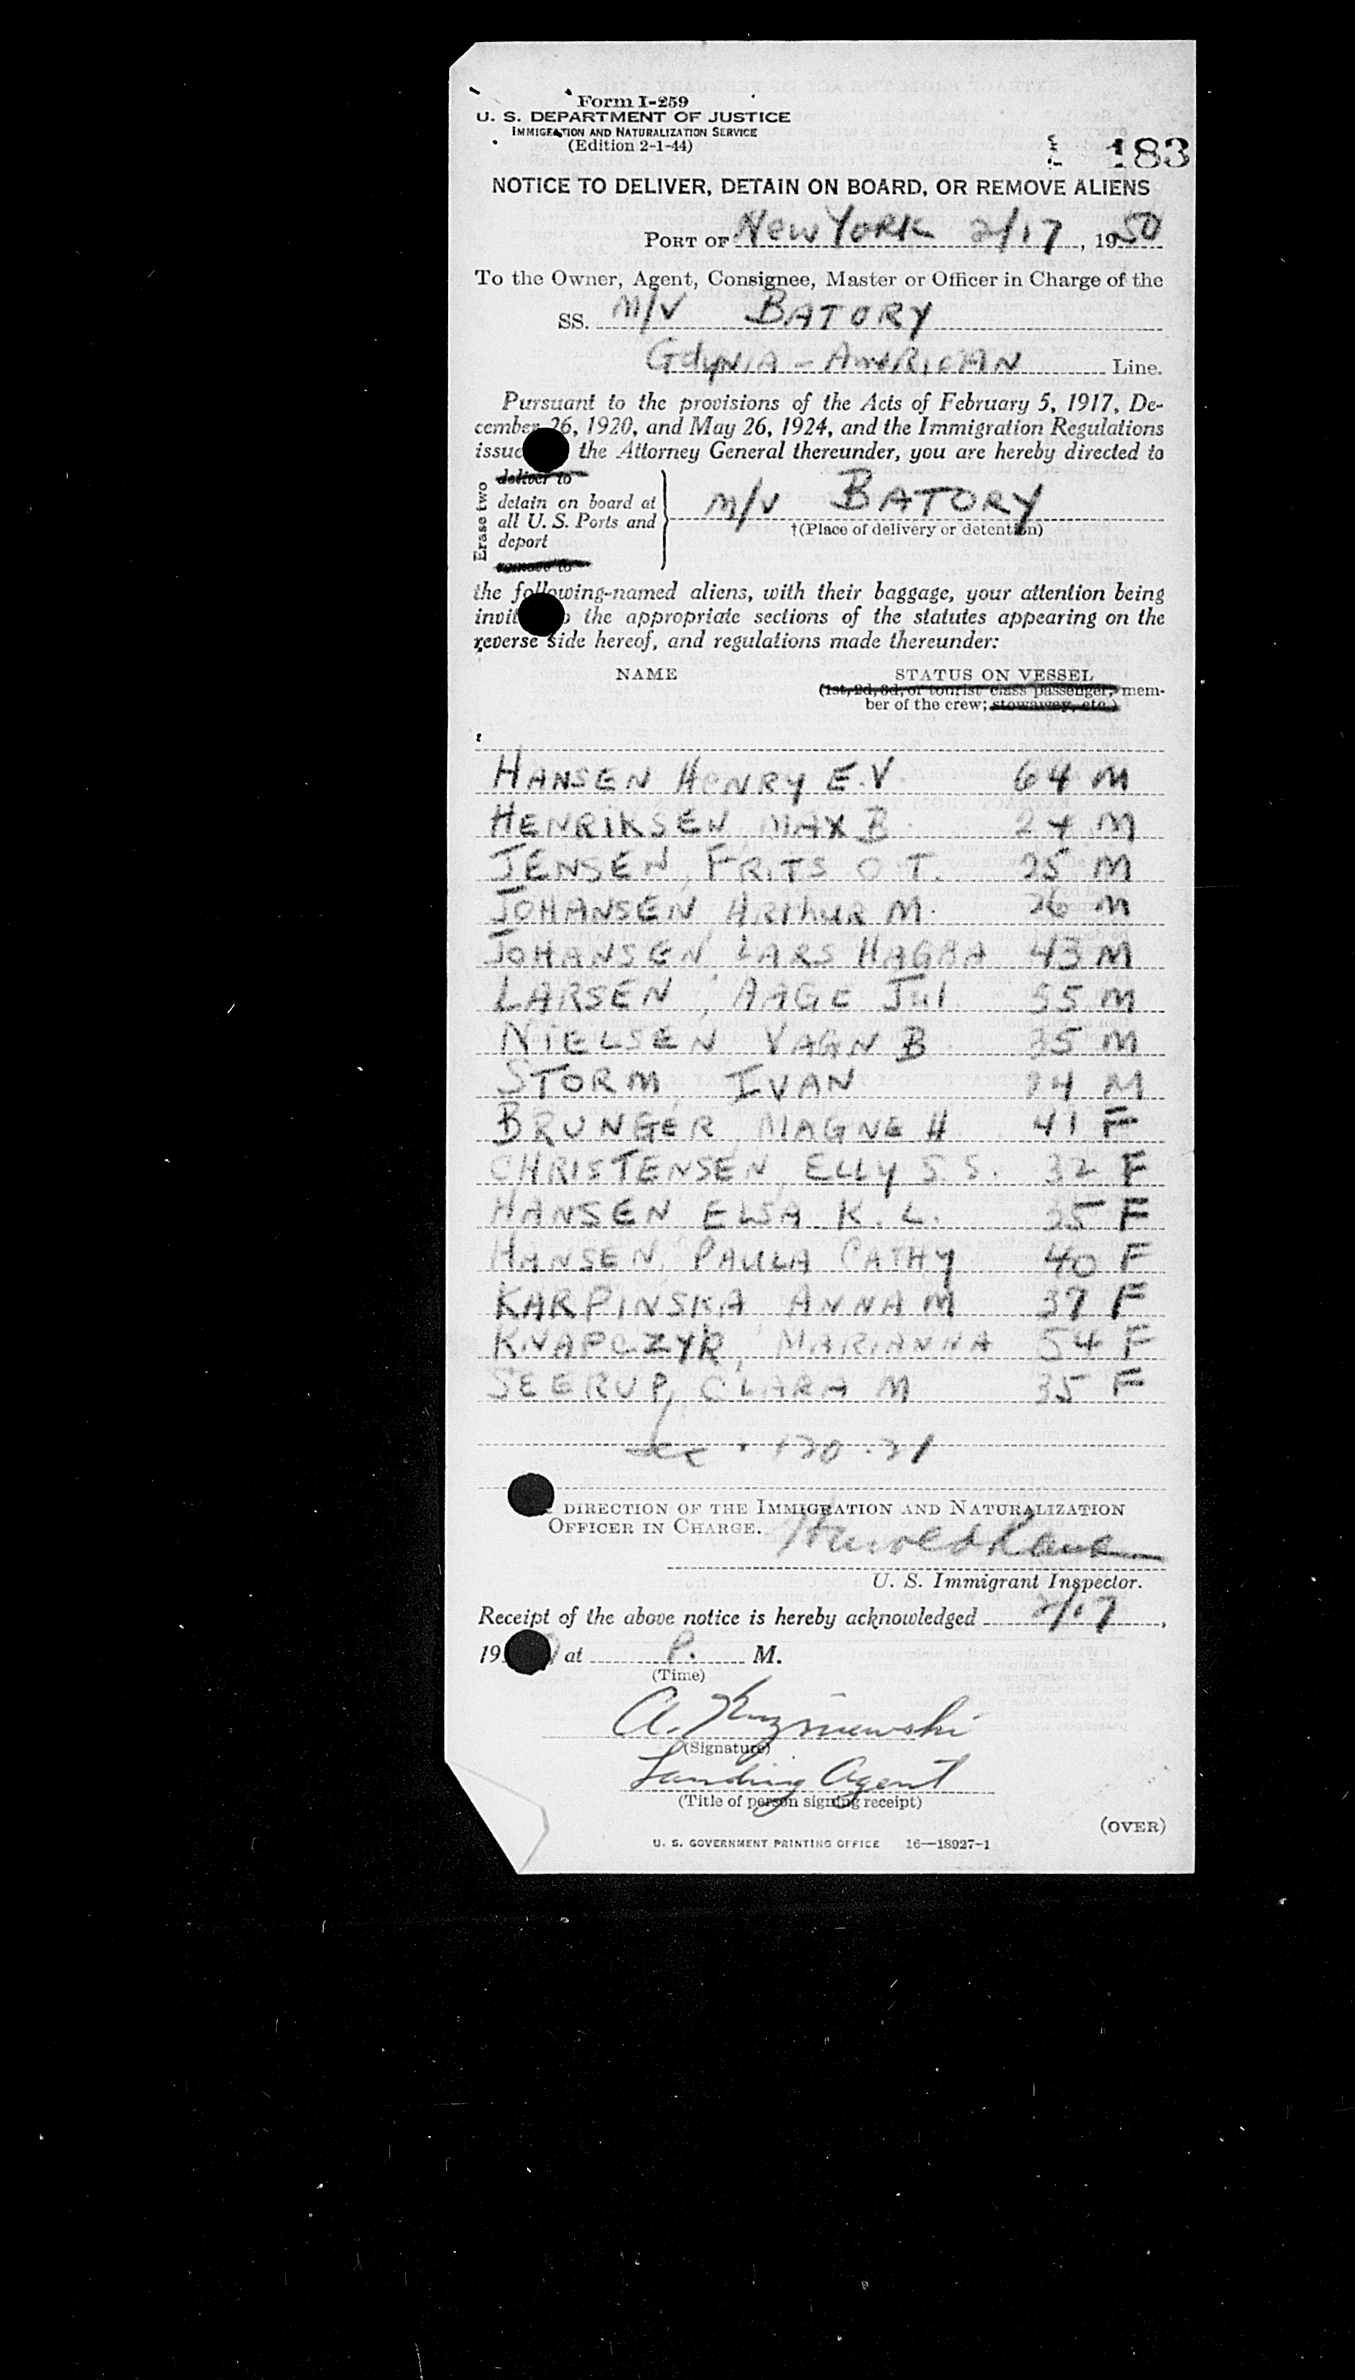 Form I-259
U. S. DEPARTMENT OF JUSTICE
IMMIGRATION AND NATURALIZATION SERVICE
(Edition 2-1-44)
183
NOTICE TO DELIVER, DETAIN ON BOARD, OR REMOVE ALIENS
PORT OF New York 2/17, 1950
To the Owner, Agent, Consignee, Master or Officer in Charge of the
SS. M/V BATORY
GdyNIA - AMERICAN Line.
Pursuant to the provisions of the Acts of February 5, 1917, De-
cember 26, 1920, and May 26, 1924, and the Immigration Regulations
issued the Attorney General thereunder, you are hereby directed to
Erase two
deliver to
detain on board at
all U. S. Ports and
deport
remove to
M/V BATORY
†(Place of delivery or detention)
the following-named aliens, with their baggage, your attention being
invited to the appropriate sections of the statutes appearing on the
reverse side hereof, and regulations made thereunder:
NAME STATUS ON VESSEL
(1st, 2d, 3d, or tourist class passenger; mem-
ber of the crew; stowaway, etc.)
HANSEN HENRY E.V 64 M
HENRIKSEN, MAX B 24 M
JENSEN, FRITS O T. 25 M
JOHANSEN ARThUR M. 26 M
JOHANSEN LARS 43 M
LARSEN, AAGE Jul 55 M
NIELSEN VAGN B 35 M
STORM, IVAN M
BRUNGER, MAGNE H 41 F
CHRISTENSEN, ELLY S. S. 32 F
HANSEN ELSA K. L. 35 F
HANSEN, PAULA CATHY 40 F
KARPINSKA ANNA M 37 F
KNAPCZYK, MARIANNA 54 F
SEERUP, CLARA M 35 F
DIRECTION OF THE IMMIGRATION AND NATURALIZATION
OFFICER IN CHARGE.
U. S. Immigrant Inspector.
Receipt of the above notice is hereby acknowledged 2/17,
19 at P. M.
(Time)
A. Kuzniewski
(Signature)
Landing Agent
(Title of person signing receipt)
(OVER)
U. S. GOVERNMENT PRINTING OFFICE 16—18927-1